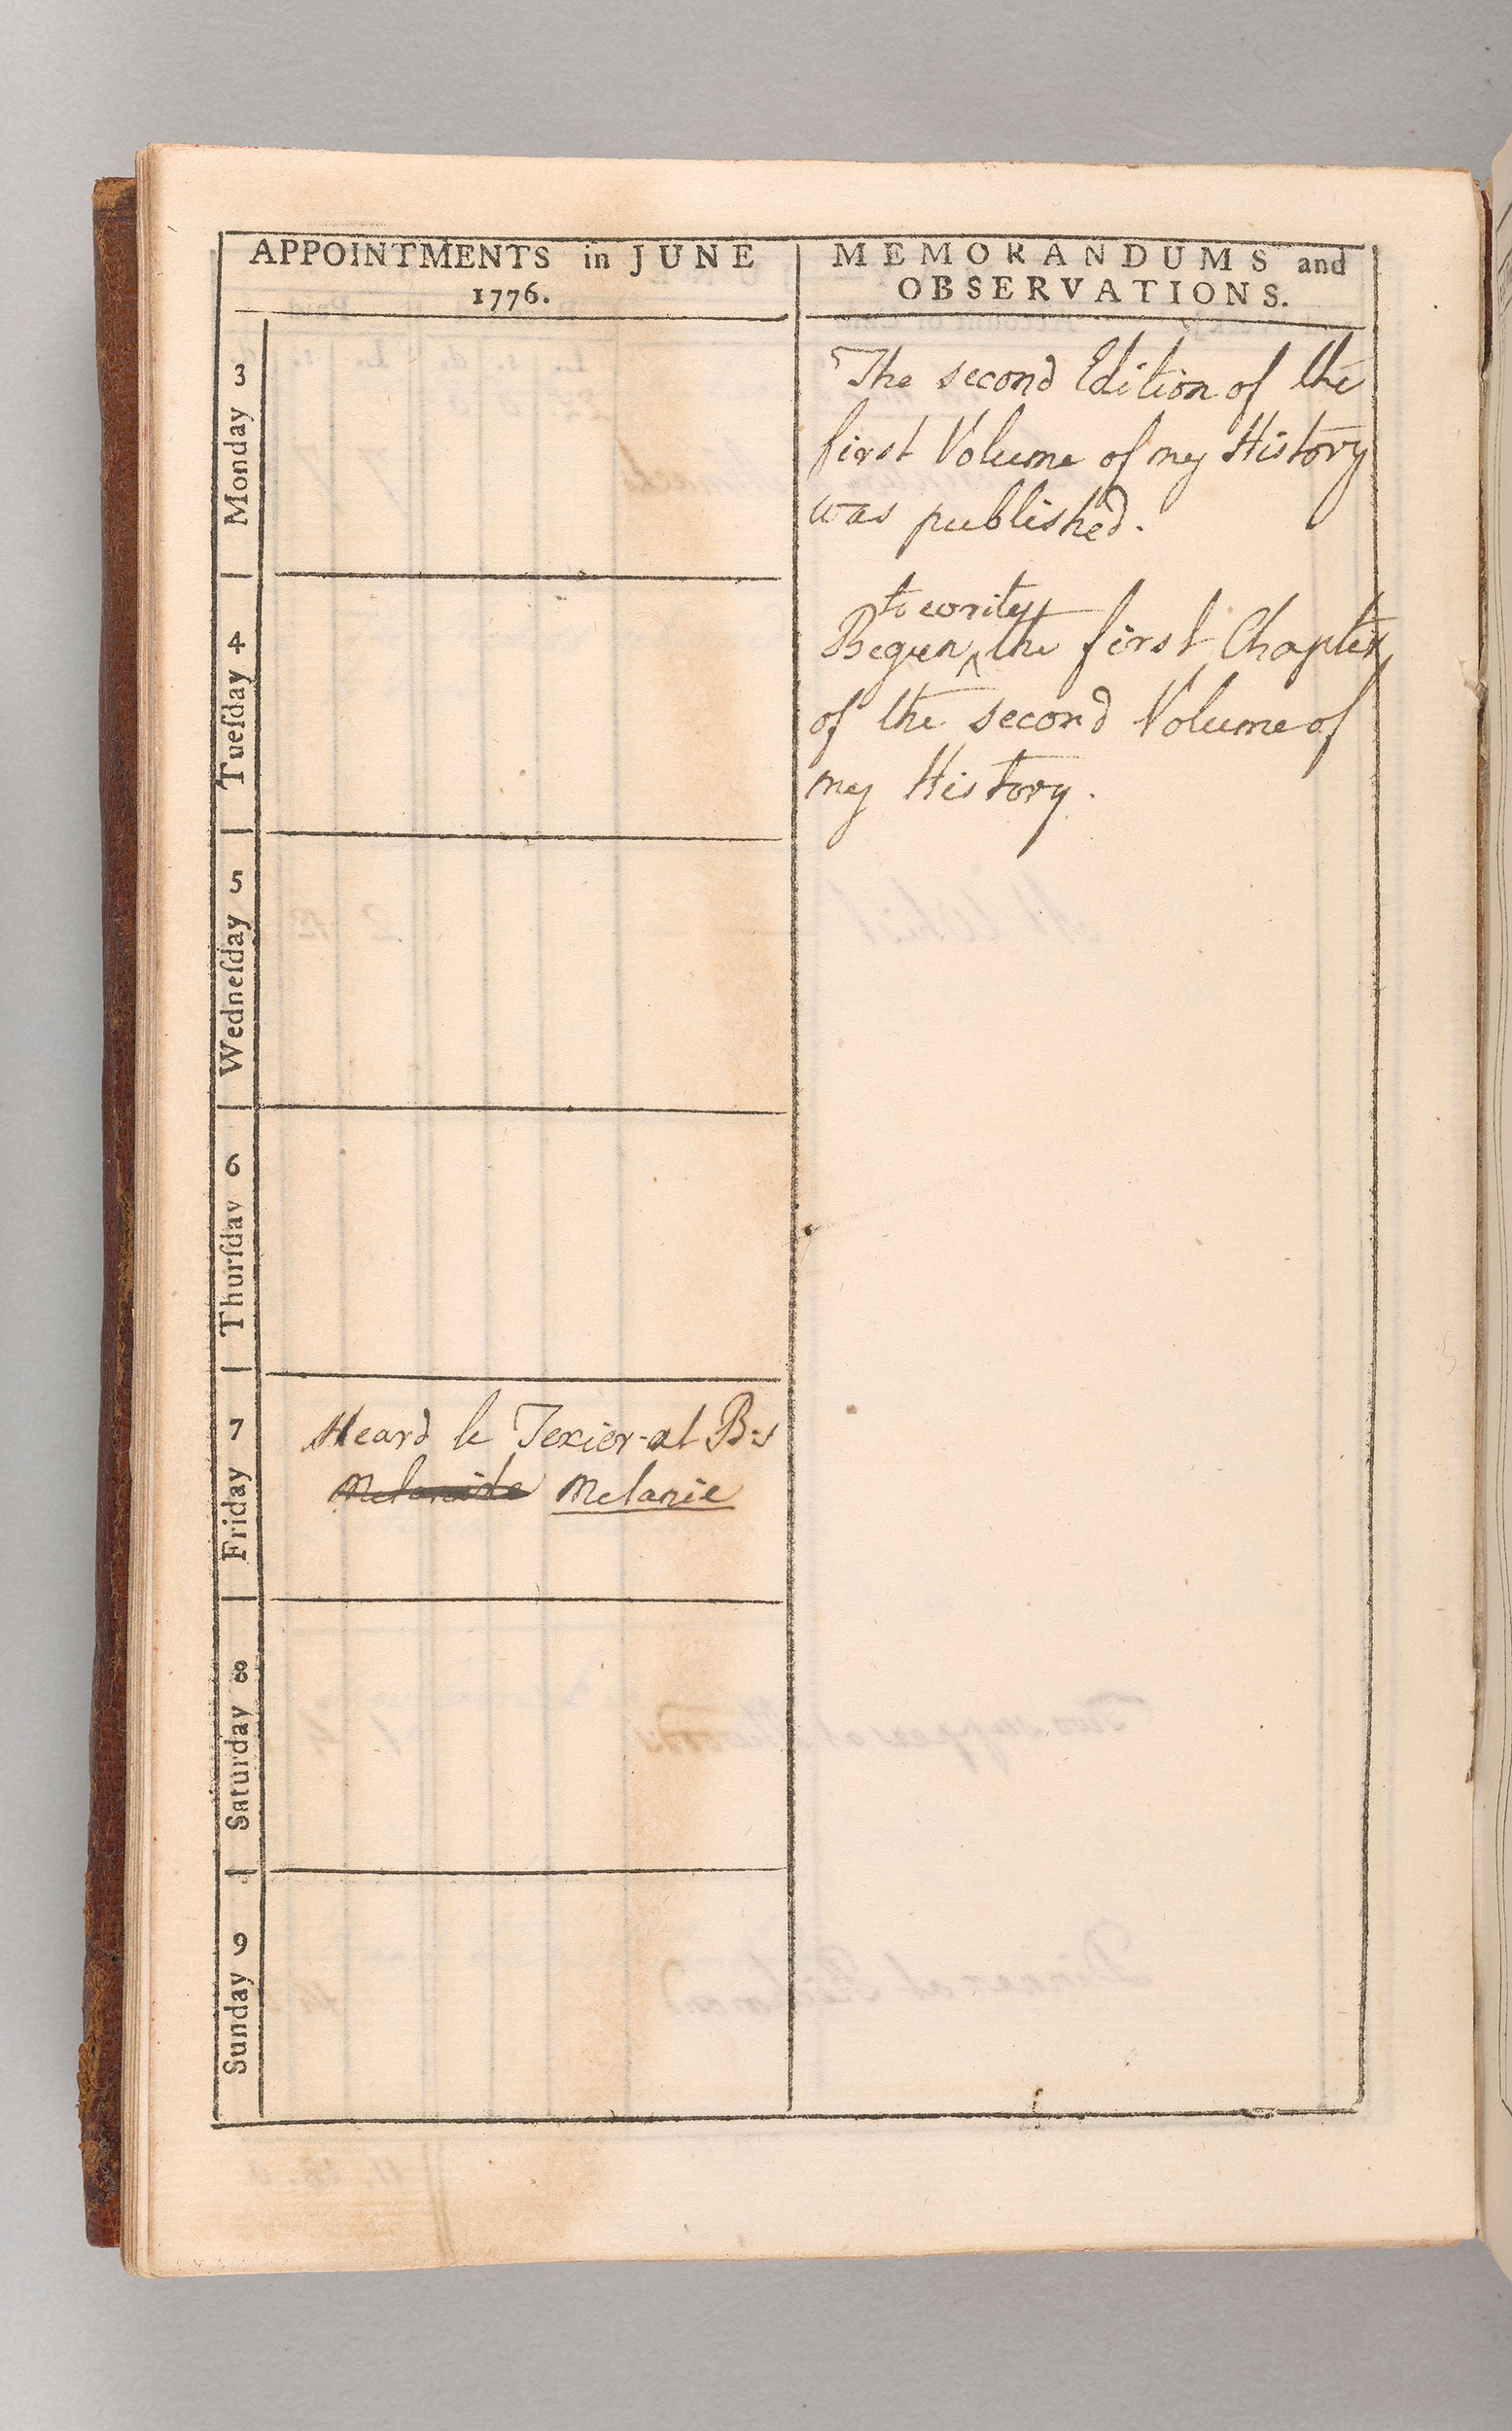 APPOINTMENTS in JUNE
1776.
MEMORANDUMS and
OBSERVATIONS.
Monday 3
The second Edition of the
first Volume of my History
was published.
Tueſday 4
to write
Begun ^ the first Chapter
of the second Volume of
my History.
Wedneſday 5
Thurſday 6
Friday 7
Heard le Texier at B:s
Melanide Melanie
Saturday 8
Sunday 9